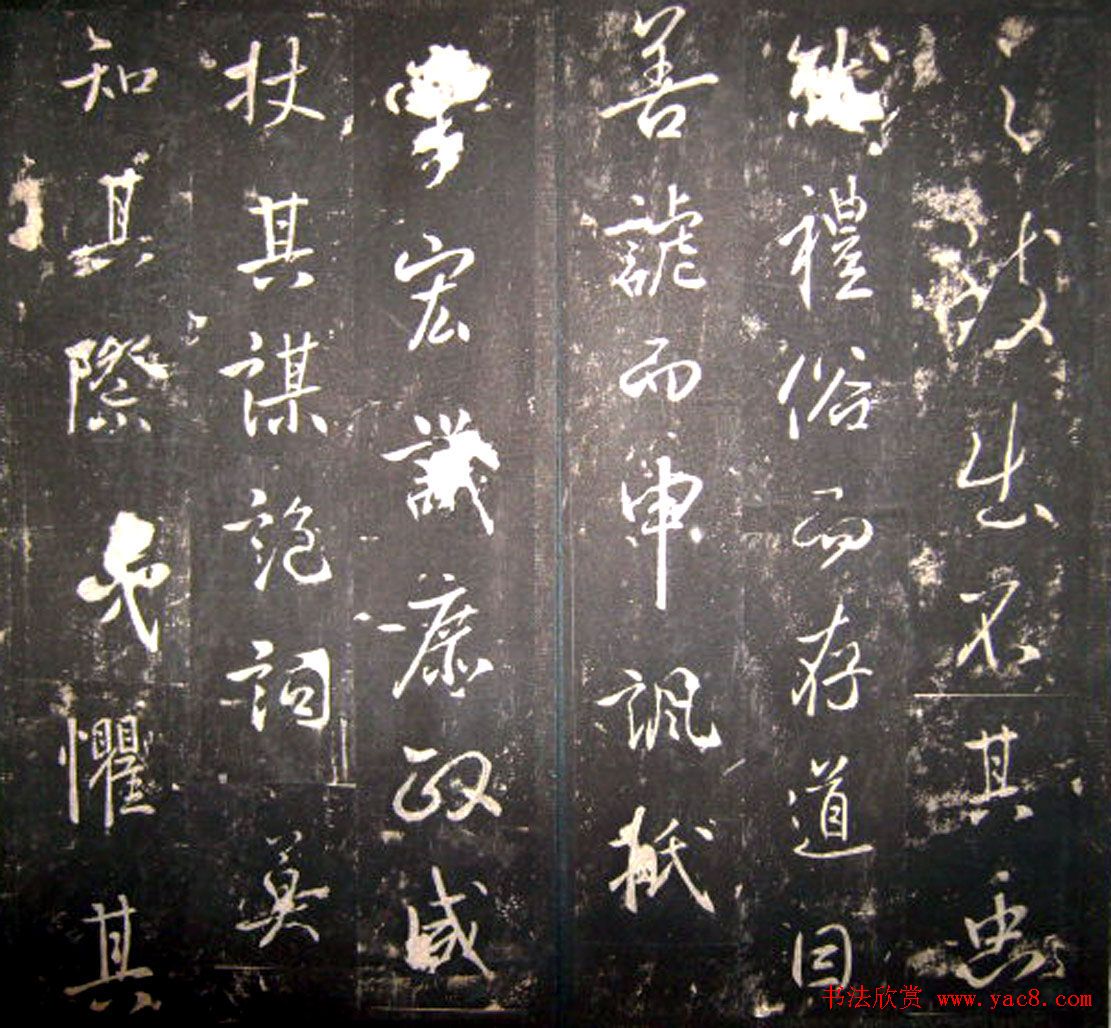 故出不其患
禮俗而存道因
善謔而申諷抵
掌宏議庶政咸
杖其謀詭詞莫
知其際懼其
书法欣赏 www.yac8.com